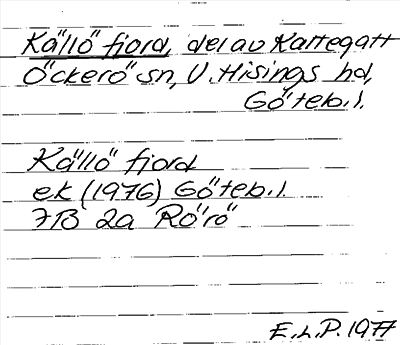 Källö fjord, del av Kattegatt
Öckerö sn, V. Hisings hd,
Göteb.l.
Källö fjord
ek (1976) Göteb.l.
7B 2a Rörö
E.L.P. 1977